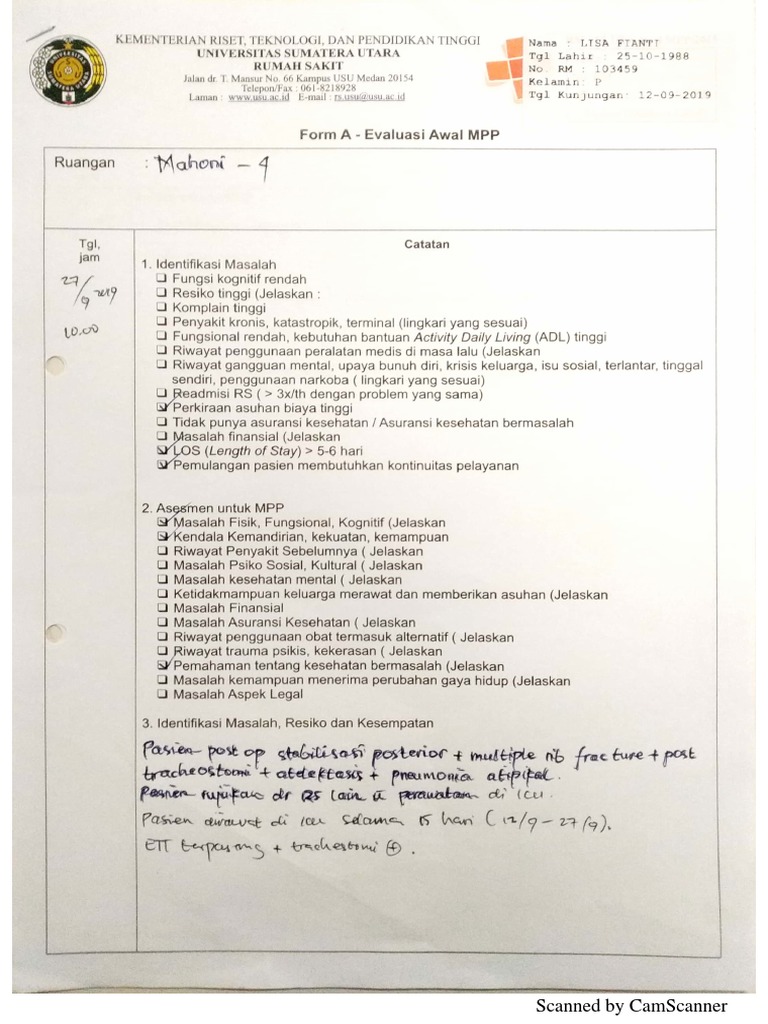 KEMENTERIAN RISET, TEKNOLOGI, DAN PENDIDIKAN TINGGI
UNIVERSITAS SUMATERA UTARA
RUMAH SAKIT
Jalan dr. T. Mansur No. 66 Kampus USU Medan 20154
Telepon/Fax : 061-8218928
Laman : www.usu.ac.id E-mail : rs.usu@usu.ac.id
Nama : LISA FIANTI
Tgl Lahir : 25-10-1988
No. RM : 103459
Kelamin: P
Tgl Kunjungan: 12-09-2019
Form A - Evaluasi Awal MPP
Ruangan : Mahoni - 4
Tgl, jam
27/9 2019
10.00
Catatan
1. Identifikasi Masalah
❑ Fungsi kognitif rendah
❑ Resiko tinggi (Jelaskan :
❑ Komplain tinggi
❑ Penyakit kronis, katastropik, terminal (lingkari yang sesuai)
❑ Fungsional rendah, kebutuhan bantuan Activity Daily Living (ADL) tinggi
❑ Riwayat penggunaan peralatan medis di masa lalu (Jelaskan
❑ Riwayat gangguan mental, upaya bunuh diri, krisis keluarga, isu sosial, terlantar, tinggal
sendiri, penggunaan narkoba ( lingkari yang sesuai)
❑ Readmisi RS ( > 3x/th dengan problem yang sama)
☑ Perkiraan asuhan biaya tinggi
❑ Tidak punya asuransi kesehatan / Asuransi kesehatan bermasalah
❑ Masalah finansial (Jelaskan
☑ LOS (Length of Stay) > 5-6 hari
☑ Pemulangan pasien membutuhkan kontinuitas pelayanan
2. Asesmen untuk MPP
☑ Masalah Fisik, Fungsional, Kognitif (Jelaskan
☑ Kendala Kemandirian, kekuatan, kemampuan
❑ Riwayat Penyakit Sebelumnya ( Jelaskan
❑ Masalah Psiko Sosial, Kultural ( Jelaskan
❑ Masalah kesehatan mental ( Jelaskan
❑ Ketidakmampuan keluarga merawat dan memberikan asuhan (Jelaskan
❑ Masalah Finansial
❑ Masalah Asuransi Kesehatan ( Jelaskan
❑ Riwayat penggunaan obat termasuk alternatif ( Jelaskan
❑ Riwayat trauma psikis, kekerasan ( Jelaskan
☑ Pemahaman tentang kesehatan bermasalah (Jelaskan
❑ Masalah kemampuan menerima perubahan gaya hidup (Jelaskan
❑ Masalah Aspek Legal
3. Identifikasi Masalah, Resiko dan Kesempatan
Pasien post op stabilisasi posterior + multiple rib fracture + post
tracheostomi + atelektasis + pneumonia atipikal.
Pasien rujukan dr RS lain perawatan di icu.
Pasien dirawat di icu selama 15 hari (12/9 - 27/9).
ETT terpasang + trachestomi ⊕.
Scanned by CamScanner